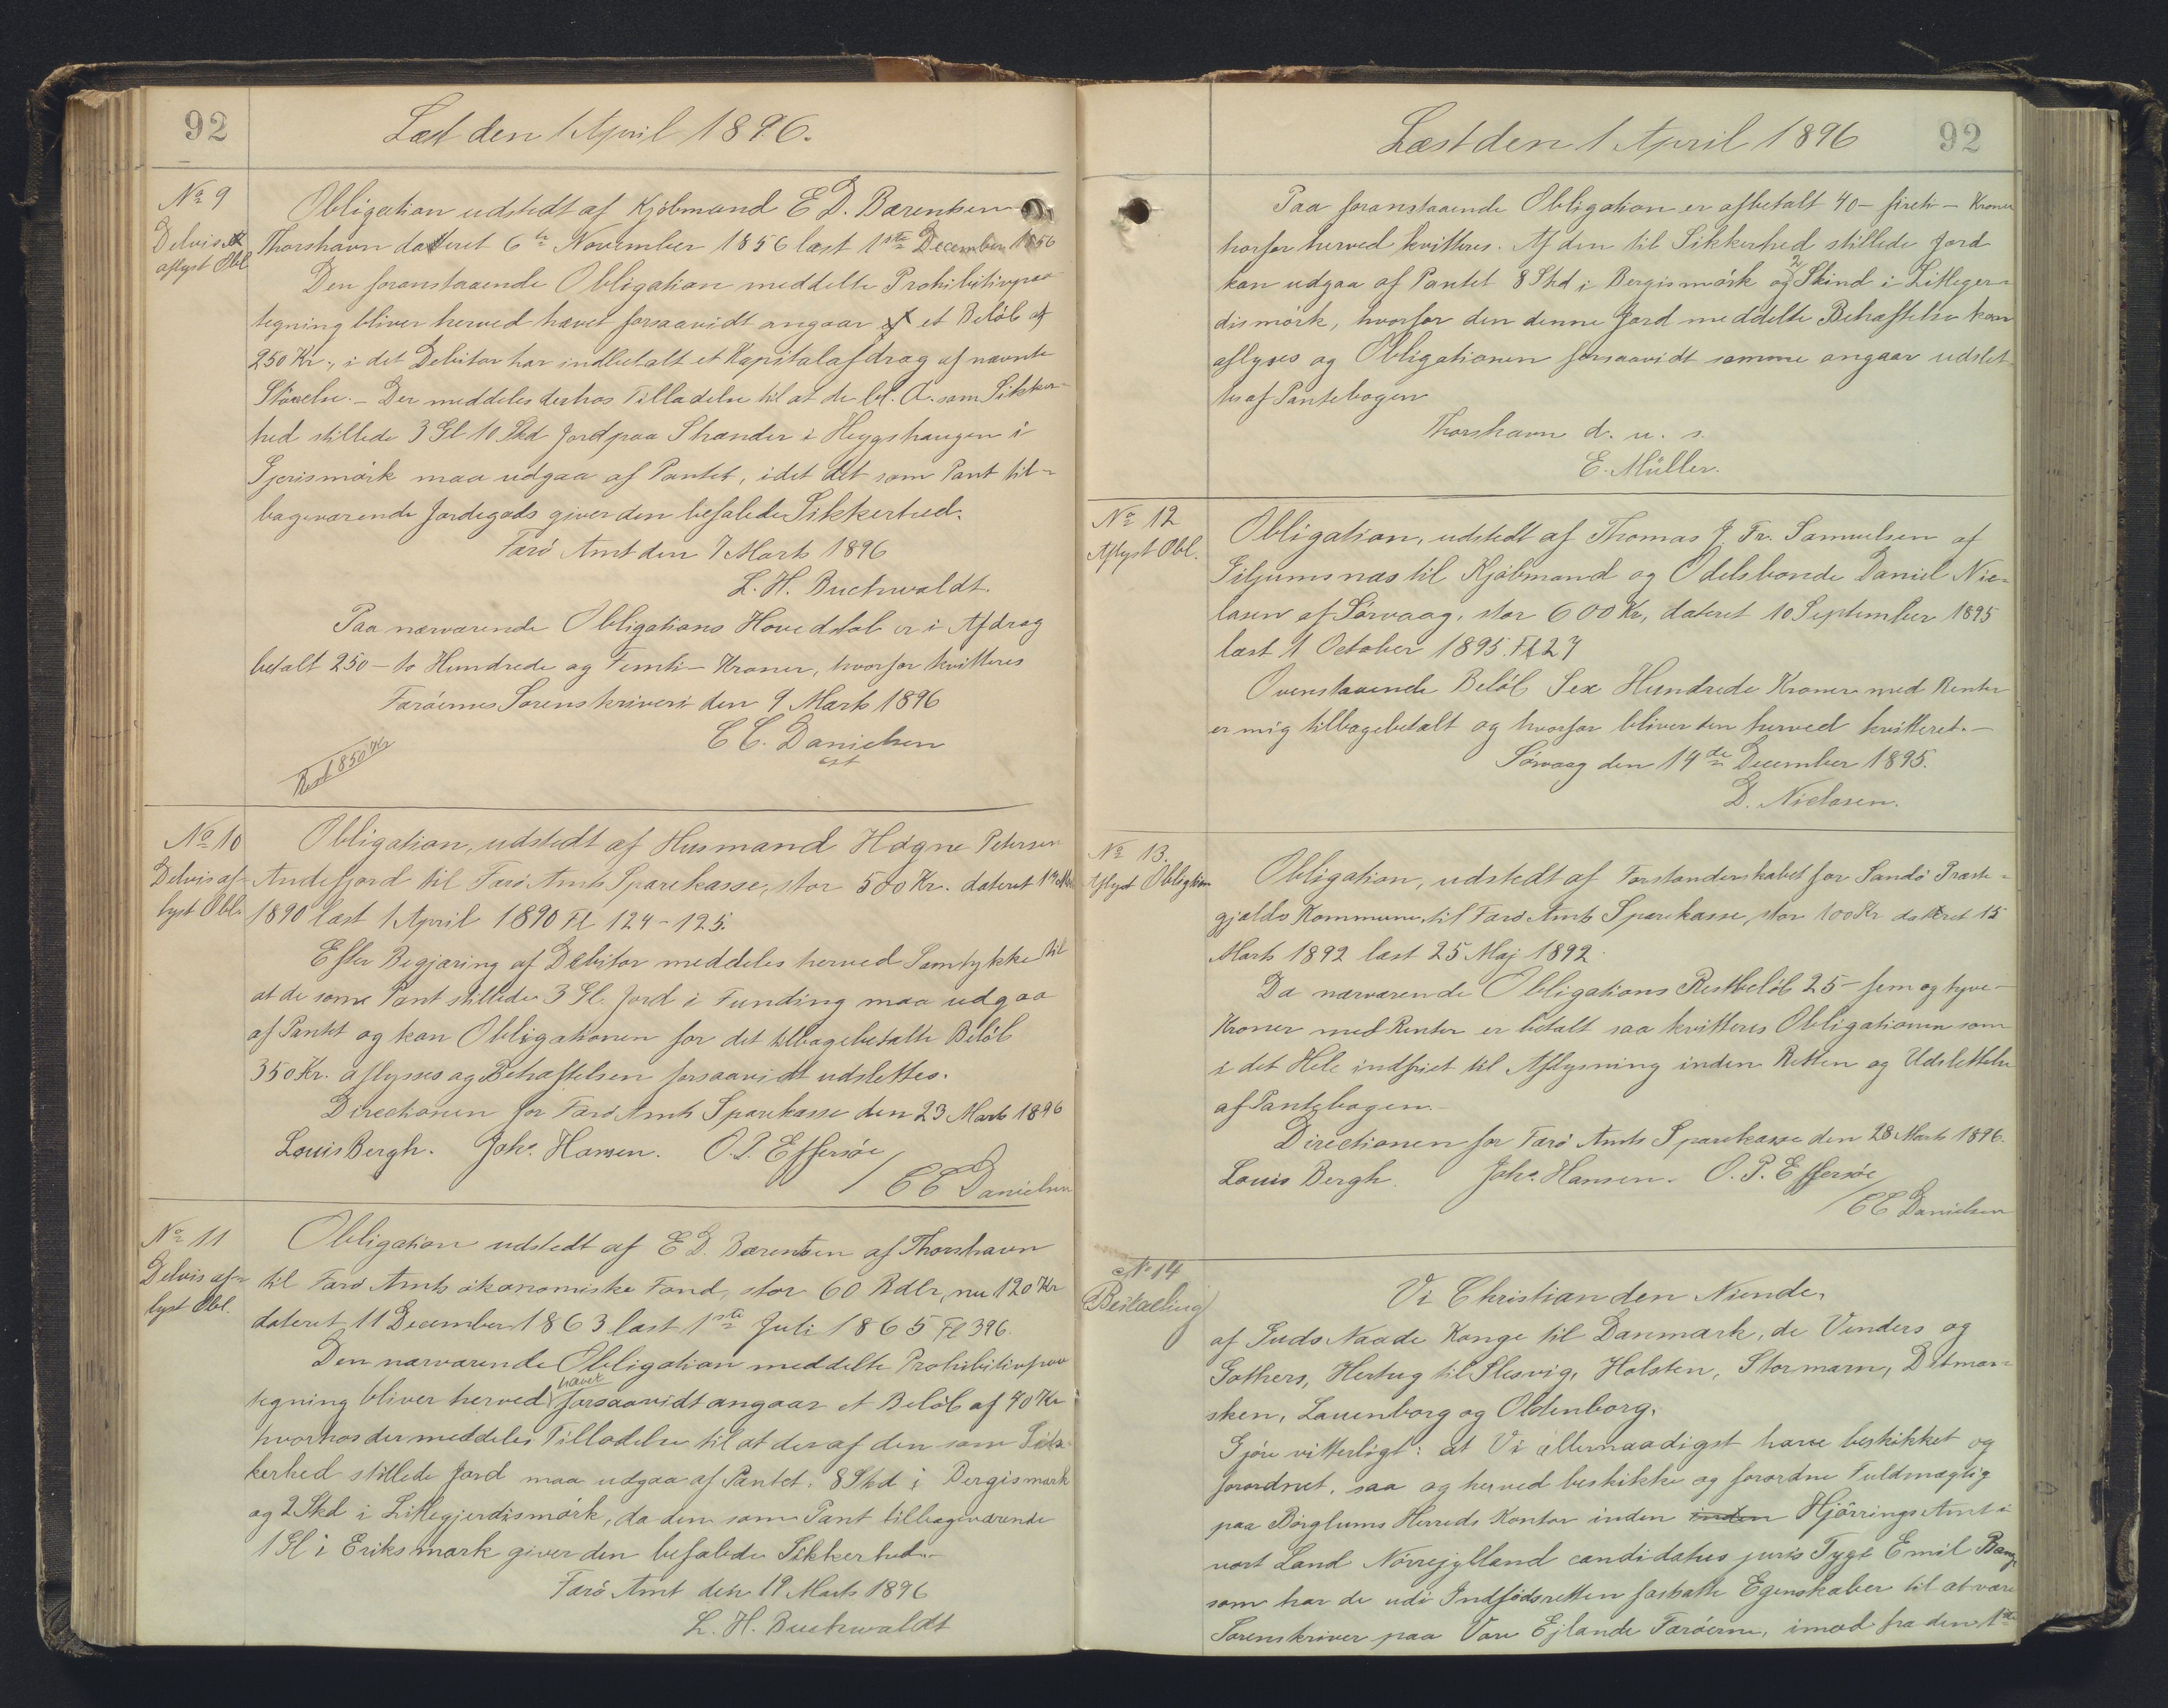 92
Læst den 1 April 1896.
No 9
Delvis
aflyst Obl
Obligation udstedt af Kjøbmand E. D. Bærentsen
Thorshavn dateret 6te November 1856 læst 1ste December 1856
Den foranstaaende Obligation meddelte Prohibitivpaa
tegning bliver herved hævet forsaavidt angaar et Beløb af
250 Kr., i det Debitor har indbetalt et Kapitalafdrag af nævnte
Størrelse. - Der meddeles derhos Tilladelse til at de bl. A. som Sikker-
hed stillede 3 Gl 10 Skd Jord paa Strander i Heygshaugen i
Gjerismørk maa udgaa af Pantet, idet det som Pant til-
bageværende Jordegods giver den befalede Sikkerhed.
Færø Amt den 7 Marts 1896
L. H. Buchwaldt.
Paa nærværende Obligations Hovedstol er i Afdrag
betalt 250 - to Hundrede og Femti - Kroner, hvorfor kvitteres
Færøernes Sorenskriveri den 9 Marts 1896
C C. Danielsen
cst
Rest 850 Kr
No 10
Delvis af-
lyst Obl.
Obligation, udstedt af Husmand Høgne Petersen
Andefjord til Færø Amts Sparekasse, stor 500 Kr. dateret 1
1890 læst 1 April 1890 Fl 124-125.
Efter Begjæring af Debitor meddeles herved Samtykke til
at de some Pant stillede 3 Gl. Jord i Funding maa udgaa
af Pantet og kan Obligationen for det tilbagebetalte Beløb
350 Kr. aflyses og Behæftelsen forsaavidt udslettes.
Directionen for Færø Amts Sparekasse den 23 Marts 1896
Louis Bergh. Johs. Hansen. O. P. Effersøe
/ C C Danielsen
No 11
Delvis af-
lyst Obl.
Obligation udstedt af E D. Bærentsen af Thorshavn
til Færø Amts økonomiske Fond, stor 60 Rdlr, nu 120 Kr
dateret 11 December 1863 læst 1ste Juli 1865 Fl 396.
Den nærværende Obligation meddelte Prohibitivpaa
tegning bliver herved hævet forsaavidt angaar et Beløb af 40 Kr
hvorhos der meddeles Tilladelse til at der af den som Sik-
kerhed stillede Jord maa udgaa af Pantet. 8 Skd i Bergismørk
og 2 Skd i Litlegjerdismørk, da den som Pant tilbageværende
1 Gl i Eriksmørk giver den befalede Sikkerhed
Færø Amt den 19 Marts 1896
L. H. Buchwaldt
Læst den 1 April 1896
92
Paa foranstaaende Obligation er afbetalt 40 - fireti - Kroner
horfor herved kvitteres. Af den til Sikkerhed stillede Jord
kan udgaa af Pantet 8 Skd i Bergismørk og 2 Skind i Litleger-
dismørk, hvorfor den denne Jord meddelte Behæftelse kan
aflyses og Obligationen forsaavidt samme angaar udslet-
tes af Pantebogen
Thorshavn d. u. s.
E. Müller.
No 12
Aflyst Obl.
Obligation, udstedt af Thomas J. Fr. Samuelsen af
Giljumsnæs til Kjøbmand og Odelsbonde Daniel Nic-
lasen af Sørvaag, stor 600 Kr, dateret 10 September 1895
læst 1 October 1895. Fl 27
Ovenstaaende Beløb Sex Hundrede Kroner med Renter
er mig tilbagebetalt og hvorfor bliver den herved kvitteret. -
Sørvaag den 14de December 1895.
D. Niclasen.
No 13.
Aflyst Obligation
Obligation, udstedt af Forstanderskabet for Sandø Præste-
gjælds Kommune til Færø Amts Sparekasse, stor 100 Kr dateret 15
Marts 1892 læst 25 Maj 1892.
Da nærværende Obligations Restbeløb 25 - fem og tyve -
Kroner med Renter er betalt saa kvitteres Obligationen som
i det Hele indfriet til Aflysning inden Retten og Udslettelse
af Pantebogen. -
Directionen for Færø Amts Sparekasse den 28 Marts 1896.
Louis Bergh. Johs. Hansen. O. P. Effersøe
/ C C Danielsen
No 14
Bestalling
Vi Christian den Niende,
af Guds Naade Konge til Danmark, de Venders og
Gothers, Hertug til Slesvig, Holsten, Stormarn, Ditmar-
sken, Lauenborg og Oldenborg.
Gjøre vitterligt: at Vi allernaadigst have beskikket og
forordnet, saa og herved beskikke og forordne Fuldmægtig
paa Børglums Herreds Kontor inden inden Hjørrings Amt i
vort Land Nørrejylland candidatus juris Tyge Emil Bang,
som har de udi Indfødsretten fastsatte Egenskaber til at være
Sorenskriver paa Vore Ejlande Færøerne, imod fra den 1ste